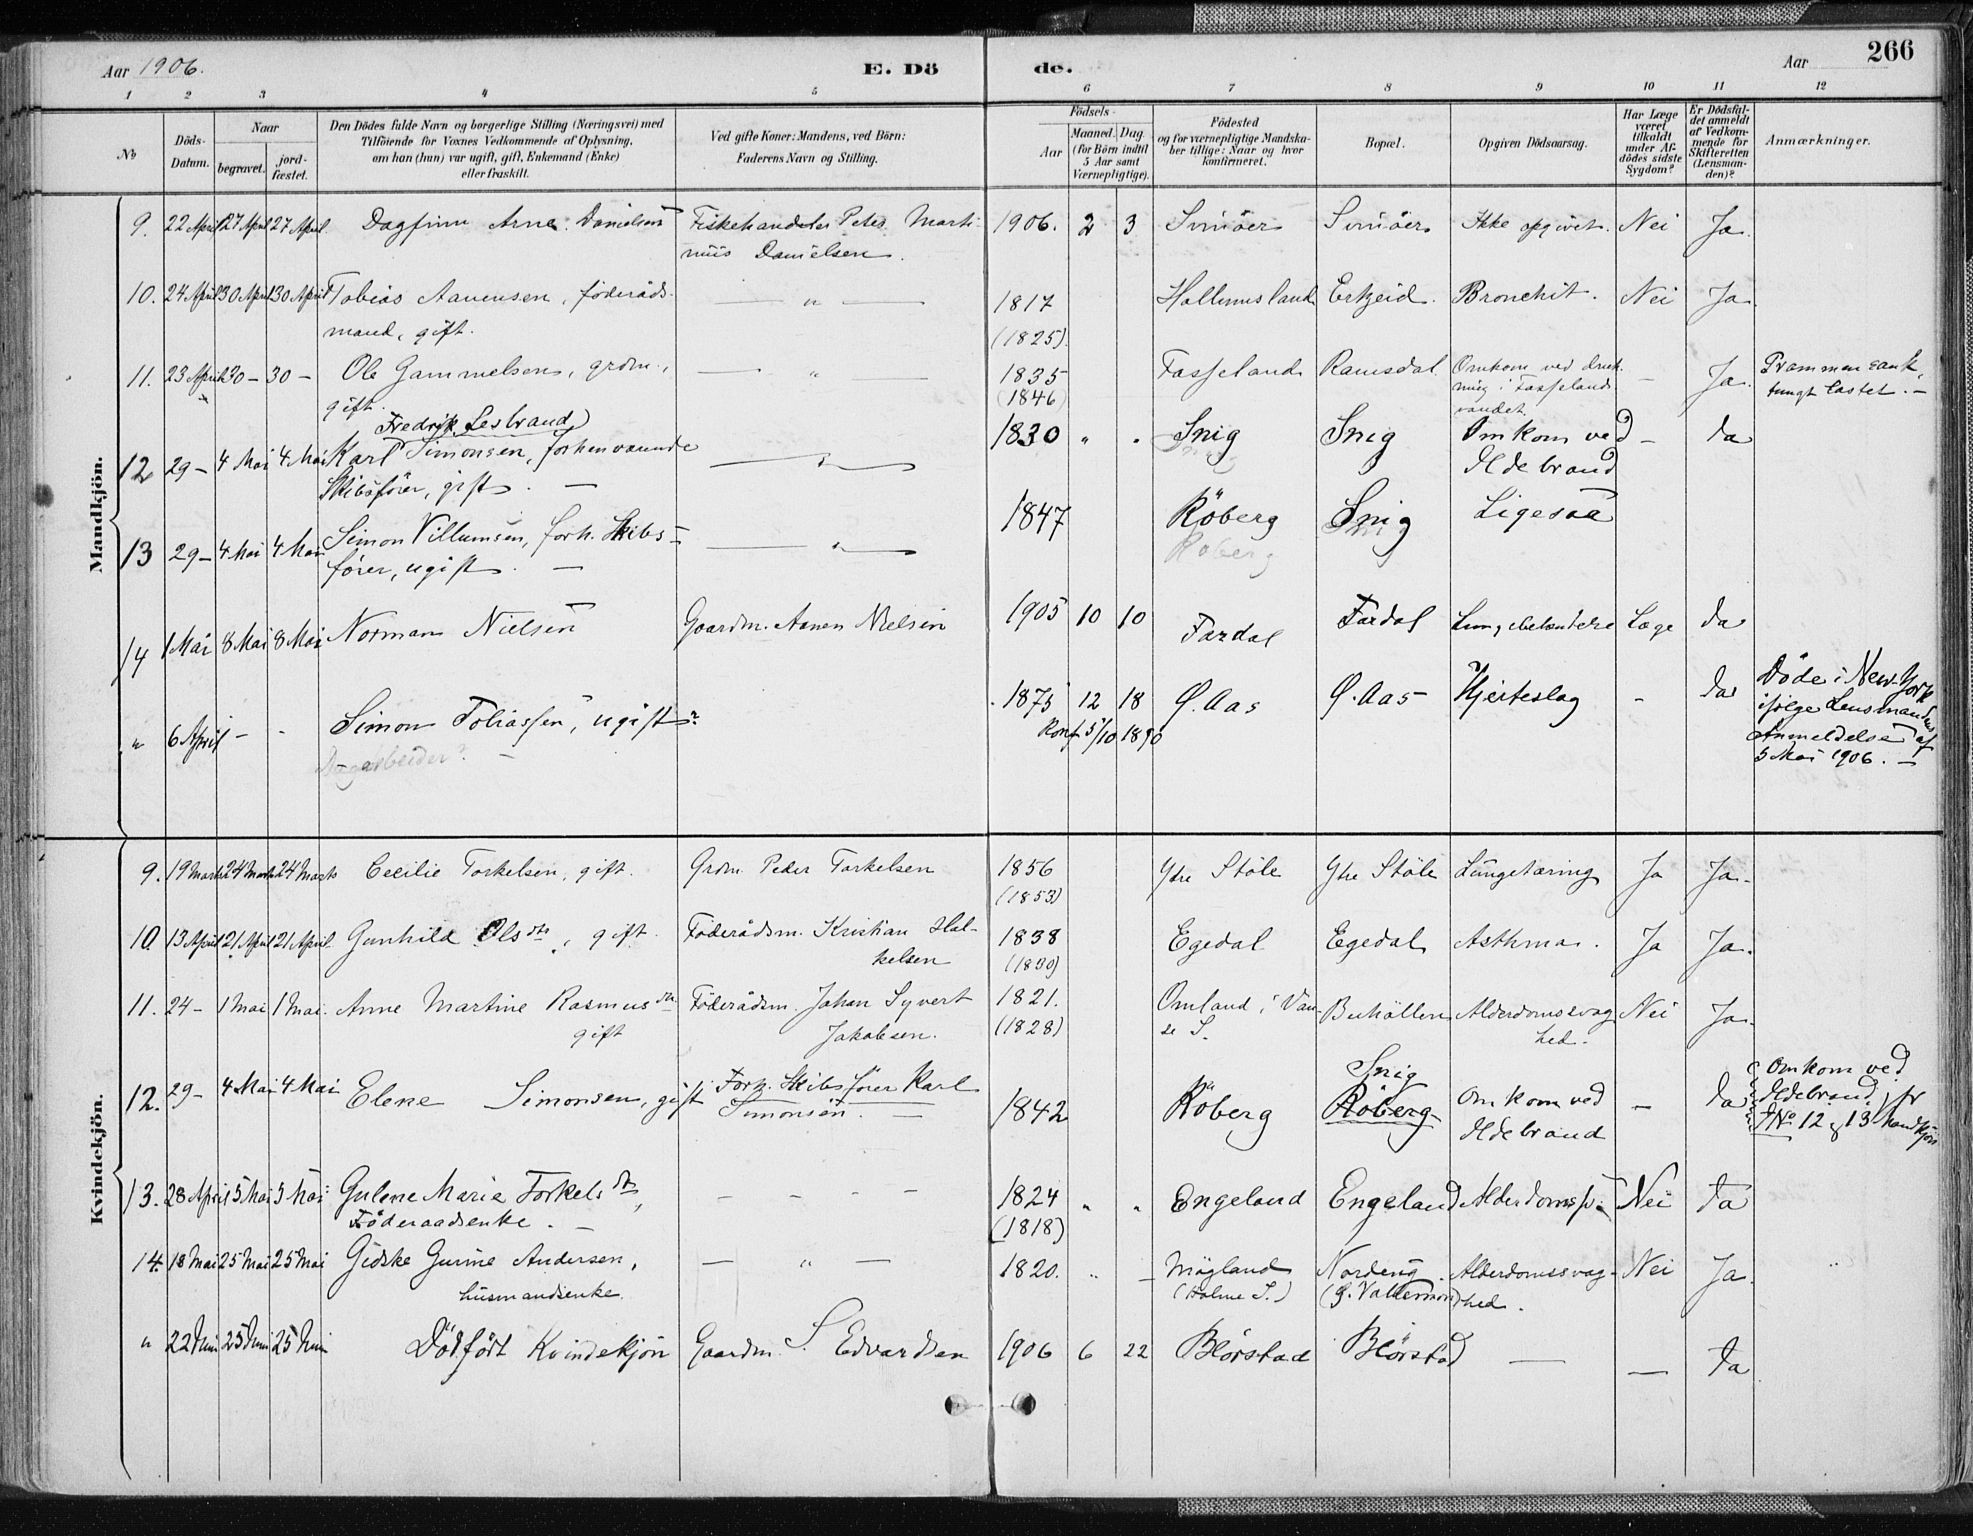 Aar 1906. E. Döde. Aar 266
1 2 3 4 5 6 7 8 9 10 11 12
No
Döds-Datum.
Naar
begravet.
jordfæstet.
Den Dödes fulde Navn og borgerlige Stilling (Næringsvei) med
Tilföiende for Voxnes Vedkommende af Oplysning,
om han (hun) var ugift, gift, Enkemand (Enke)
eller fraskilt.
Ved gifte Koner: Mandens, ved Börn:
Faderens Navn og Stilling.
Födsels-
Aar
Maaned. Dag.
(for Börn indtil
5 Aar samt
Værnepligtige).
Födested
og for værnepligtige Mandska-
ber tillige: Naar og hvor
konfirmeret.
Bopæl.
Opgiven Dödsaarsag.
Har Læge
været
tilkaldt
under Af-
dödes sidste
Sygdom?
Er Dödsfal-
det anmeldt
af Vedkom-
mende for
Skifteretten
(Lensman-
den)?
Anmærkninger.
Mandkjön.
9. 22 April 27 April 27 April Dagfinn Arne Danielsen Fiskehandeler Peter Marti- 1906. 2 3 Svinöer Svinöer Ikke opgivet. Nei Ja.
nius Danielsen.
10. 24 April 30 April 30 April Tobias Aanensen, föderåds- — " — 1817 Hollumsland Bronchit. Nei Ja.
mand, gift. (1825).
11. 23 April 30 — 30 — Ole Gammelsen, grdm., — " — 1835 Fasseland Ramsdal Omkom ved druk- — Ja. Prammen sank,
gift. (1846) ning i Fasselands tungt lastet. —
vandet.
Fredrik Lesbrand
12 29 — 4 Mai 4 Mai Karl Simonsen, forhenværende — " — 1830 " " Snig Snig Omkom ved — Ja
Skibsförer, gift. — Ildebrand
13 29 — 4 Mai 4 Mai Simon Villumsen, forh. Skibs- — " — 1847 Röberg Snig Ligesaa
förer, ugift. — Röberg
14 1 Mai 8 Mai 8 Mai Norman Nielsen Gaardm. Aanen Nielsen 1905 10 10 Fardal Fardal Læge Ja
" 6 April — - Simon Tobiassen, ugift? 1875 12 18 Ø. Aas Ø. Aas Hjerteslag - Ja Döde i New-York
Konf 5/10 1890 ifölge Lensmandens
Dagarbeider? — Anmeldelse af
5 Mai 1906. —
Kvindekjön.
9. 19 Marts 24 Marts 24 Marts Cecilie Torkelsen, gift. Grdm. Peder Torkelsen 1856 Ytre Stöle Ytre Stöle Lungetæring Ja Ja.
(1853)
10. 13 April 21 April 21 April Gunhild Olsdtr, gift. Föderådsm. Kristian Hal- 1838 Egedal Egedal Asthma. Ja Ja.
kelsen (1830)
11. 24 — 1 Mai 1 Mai. Anne Martine Rasmusdtr Föderådsm. Johan Syvert 1821. Omland i Van- Alderdomssvag- Nei Ja.
gift Jakobsen. (1828) se S. hed.
12. 29 — 4 Mai 4 Mai Elene Simonsen, gift Forh. Skibsförer Karl 1842 Röberg Snig Omkom ved — Ja Omkom ved
Simonsen. — Röberg Ildebrand Ildebrand, jfr
No 12 & 13 Mandkjön
13. 28 April 5 Mai 5 Mai Gulene Marie Torkelsdtr, - - - - 1824 " " Engeland Engeland Nei Ja
Föderaadsenke. — (1818)
14. 18 Mai 25 Mai 25 Mai Gidske Gurine Andersen, — " — 1820. " — Mögland Nordeng. Alderdomssvag- Nei Ja.
husmandsenke. (Holme S.) hed.
" 22 Juni 25 Juni 25 Juni Dödfödt Kvindekjön Gaardm. S. Edvardsen 1906 6 22 Blörstad Blörstad — — Ja